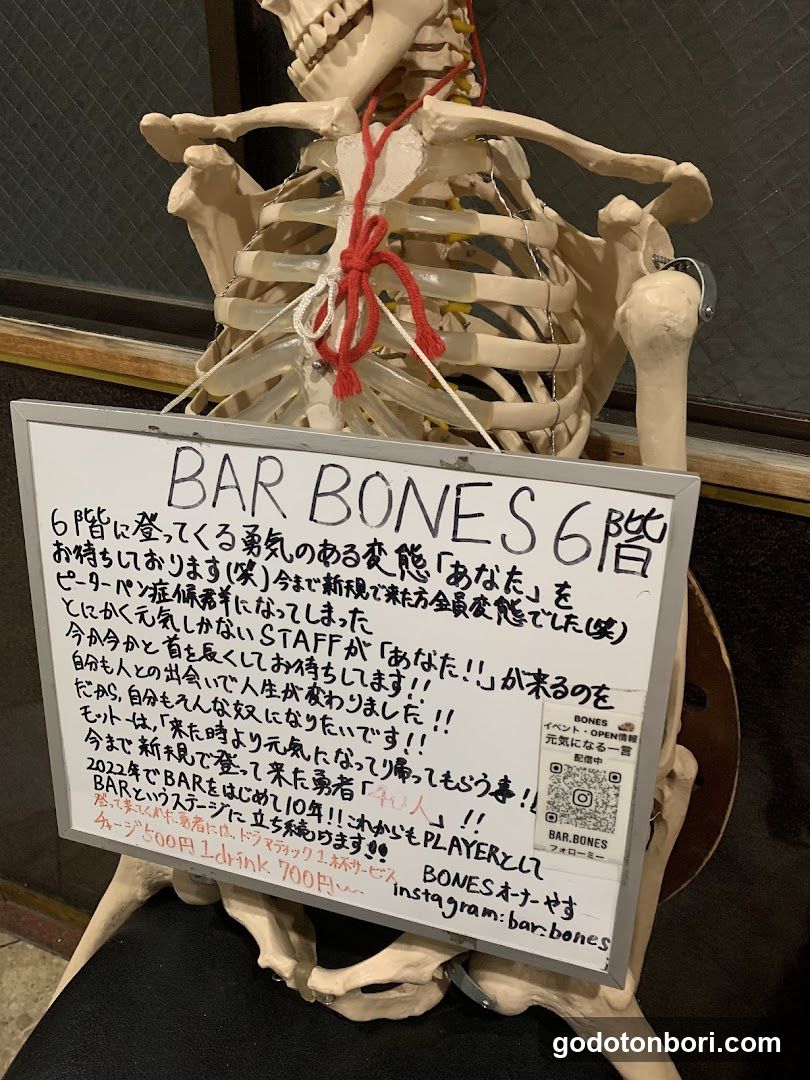 BAR BONES 6階
6階に登ってくる勇気のある変態「あなた」を
お待ちしております(笑)今まで新規で来た方全員変態でした(笑)
ピーターパン症候群になってしまった
とにかく元気しかないSTAFFが「あなた!!」が来るのを
今か今かと首を長くしてお待ちしてます!!
自分も人との出会いで人生が変わりました!!
だから、自分もそんな奴になりたいです!!
モットーは、「来た時より元気になってり帰ってもらう事!!
今まで新規で登って来た勇者「40人」!!
2022年でBARをはじめて10年!!これからもPLAYERとして
BARというステージに立ち続けます!!
登って来てくれた勇者には、ドラマティック1杯サービス
チャージ500円 1drink 700円〜
BONESオーナーやす
instagram:bar.bones
BONES
イベント・OPEN情報
元気になる一言
配信中
BAR.BONES
フォローミー
godotonbori.com